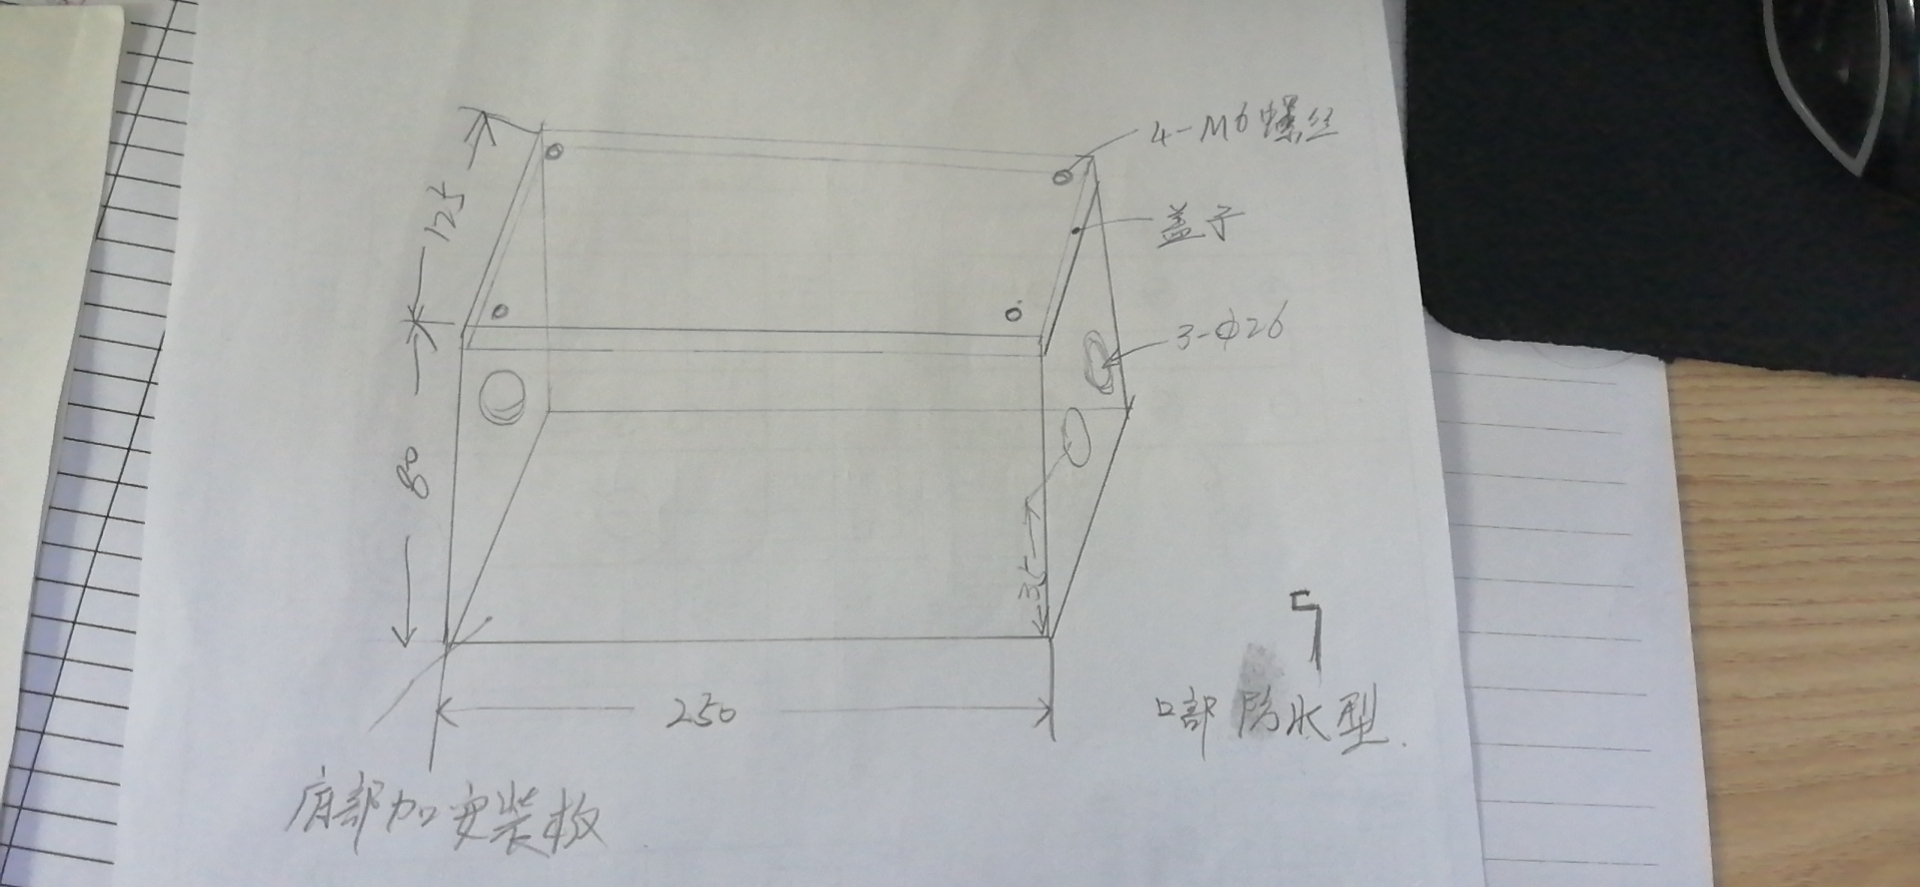 4-M6螺丝
125
盖子
3-Φ26
80
35
250
口部防水型.
底部加安装板